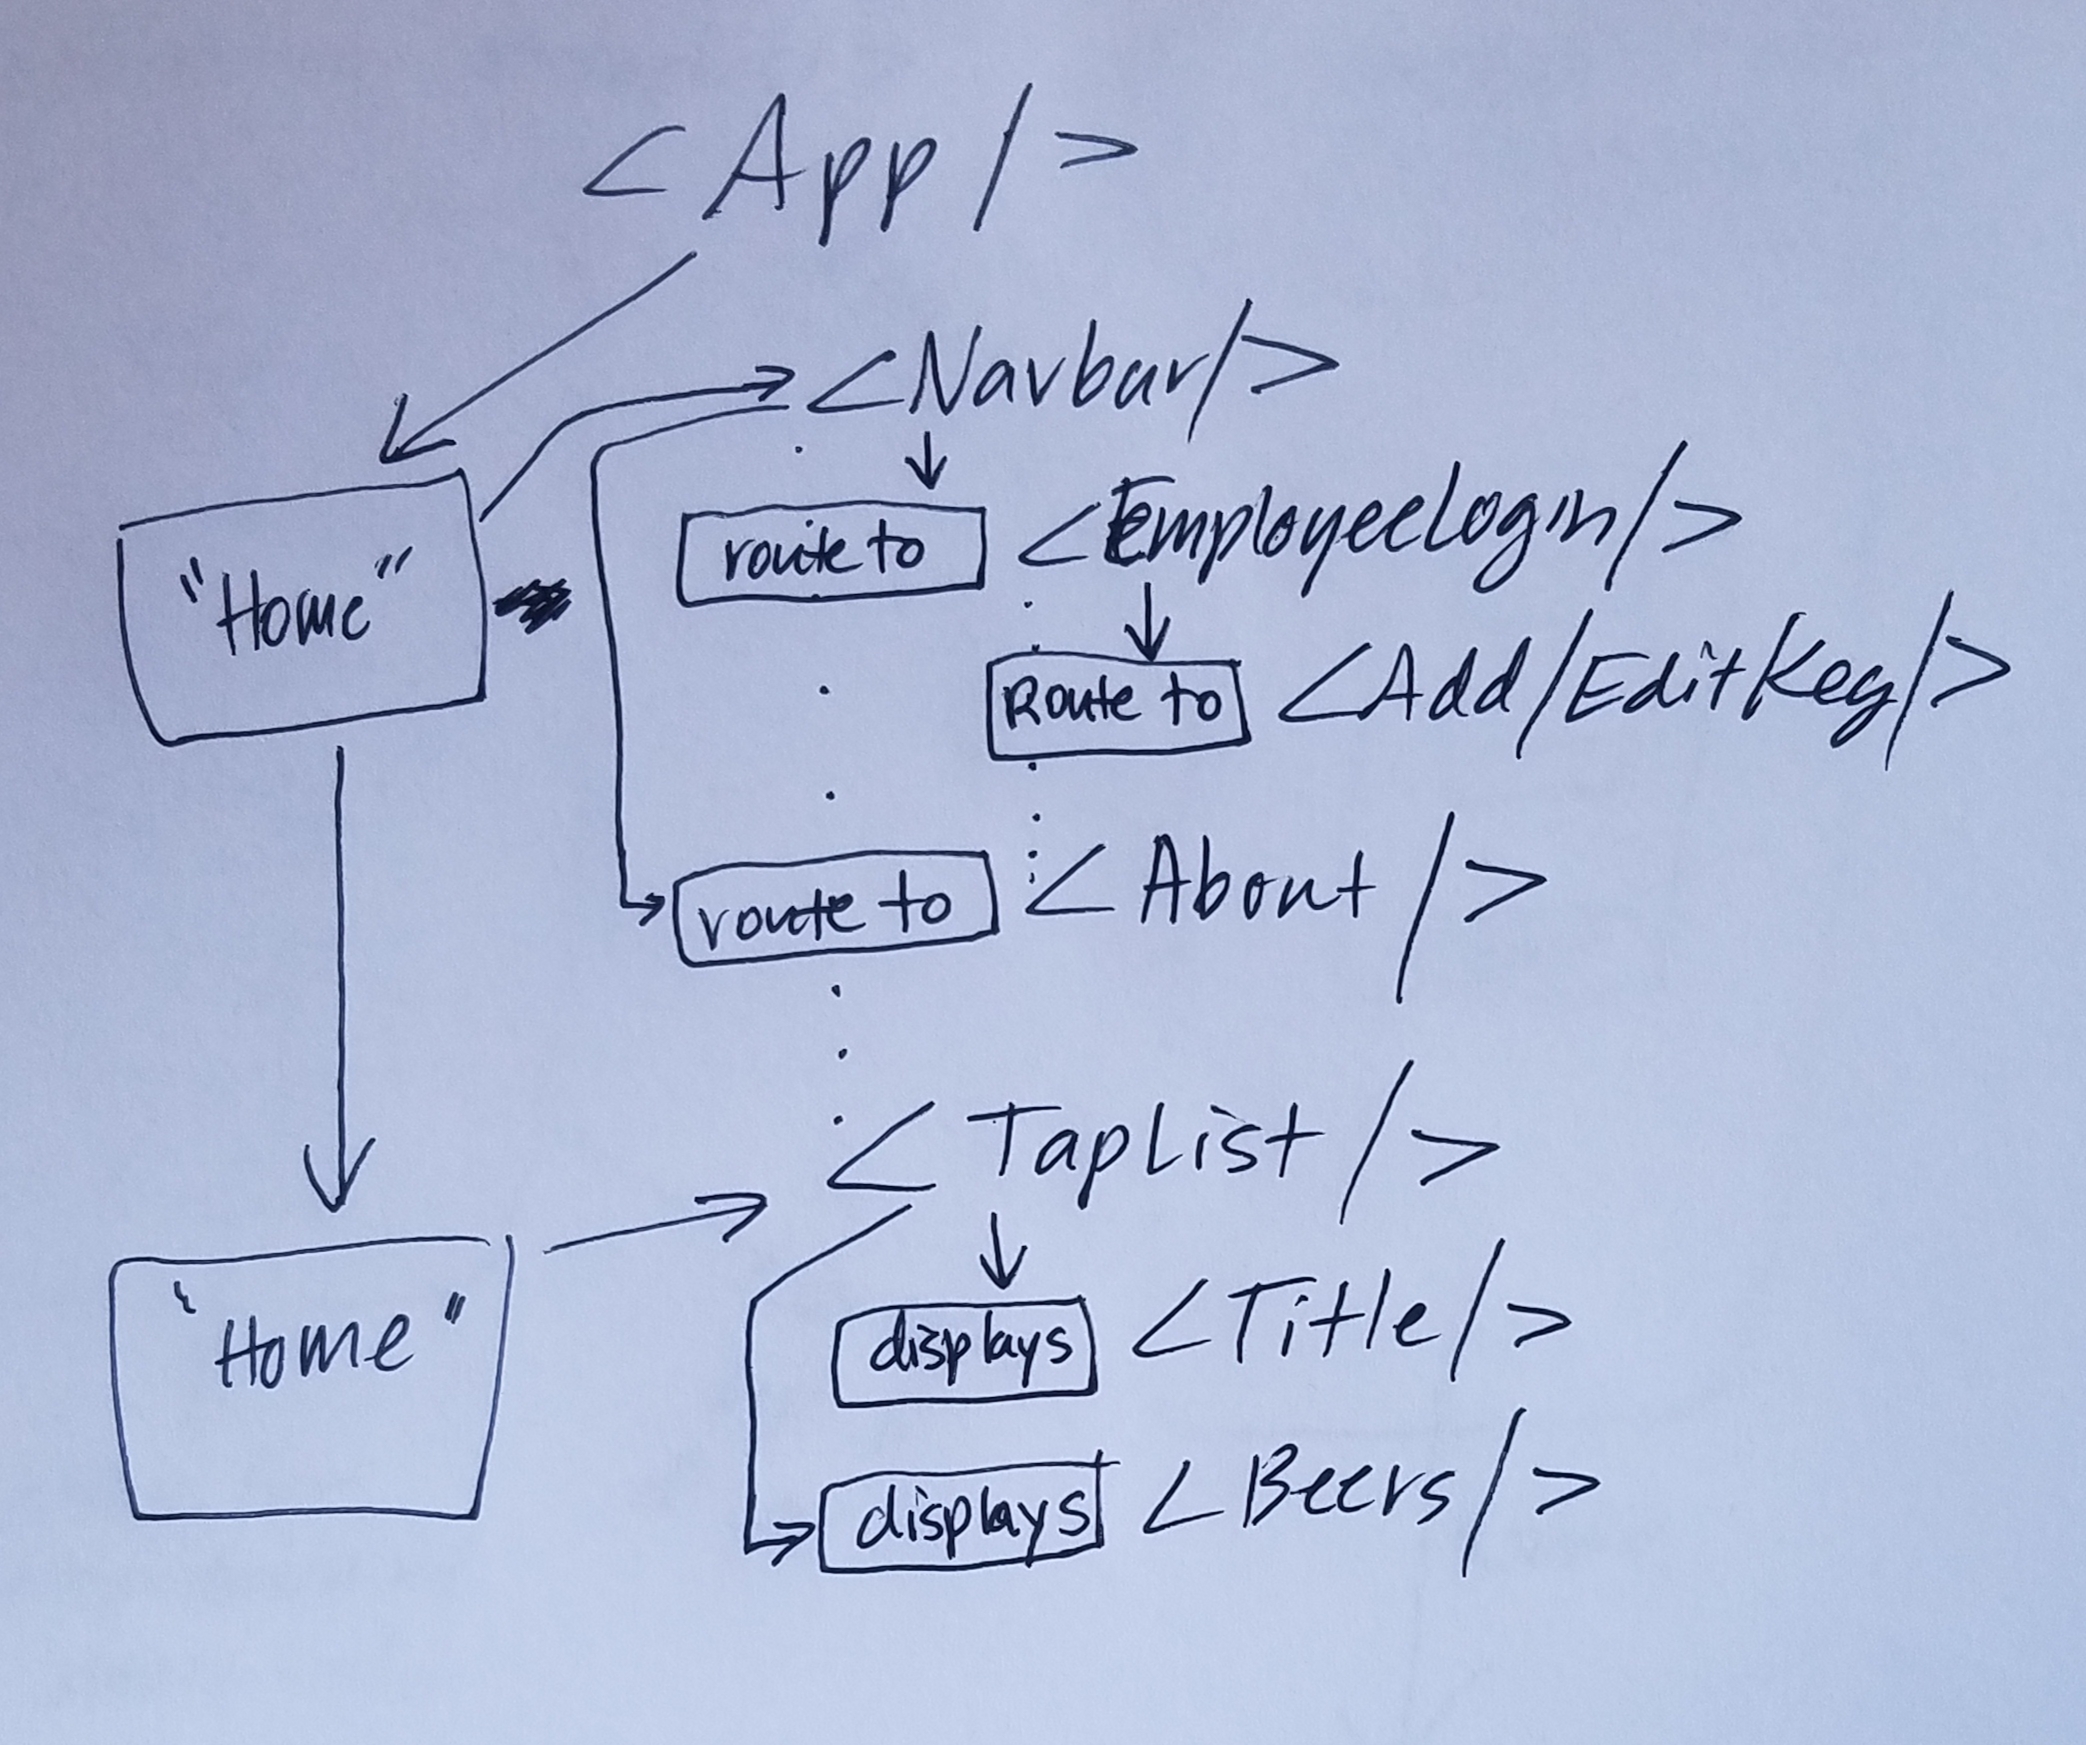 <App/>
<Navbar/>
"Home"
route to <EmployeeLogin/>
Route to <Add/EditKeg/>
route to <About/>
<TapList/>
"Home"
displays <Title/>
displays <Beers/>